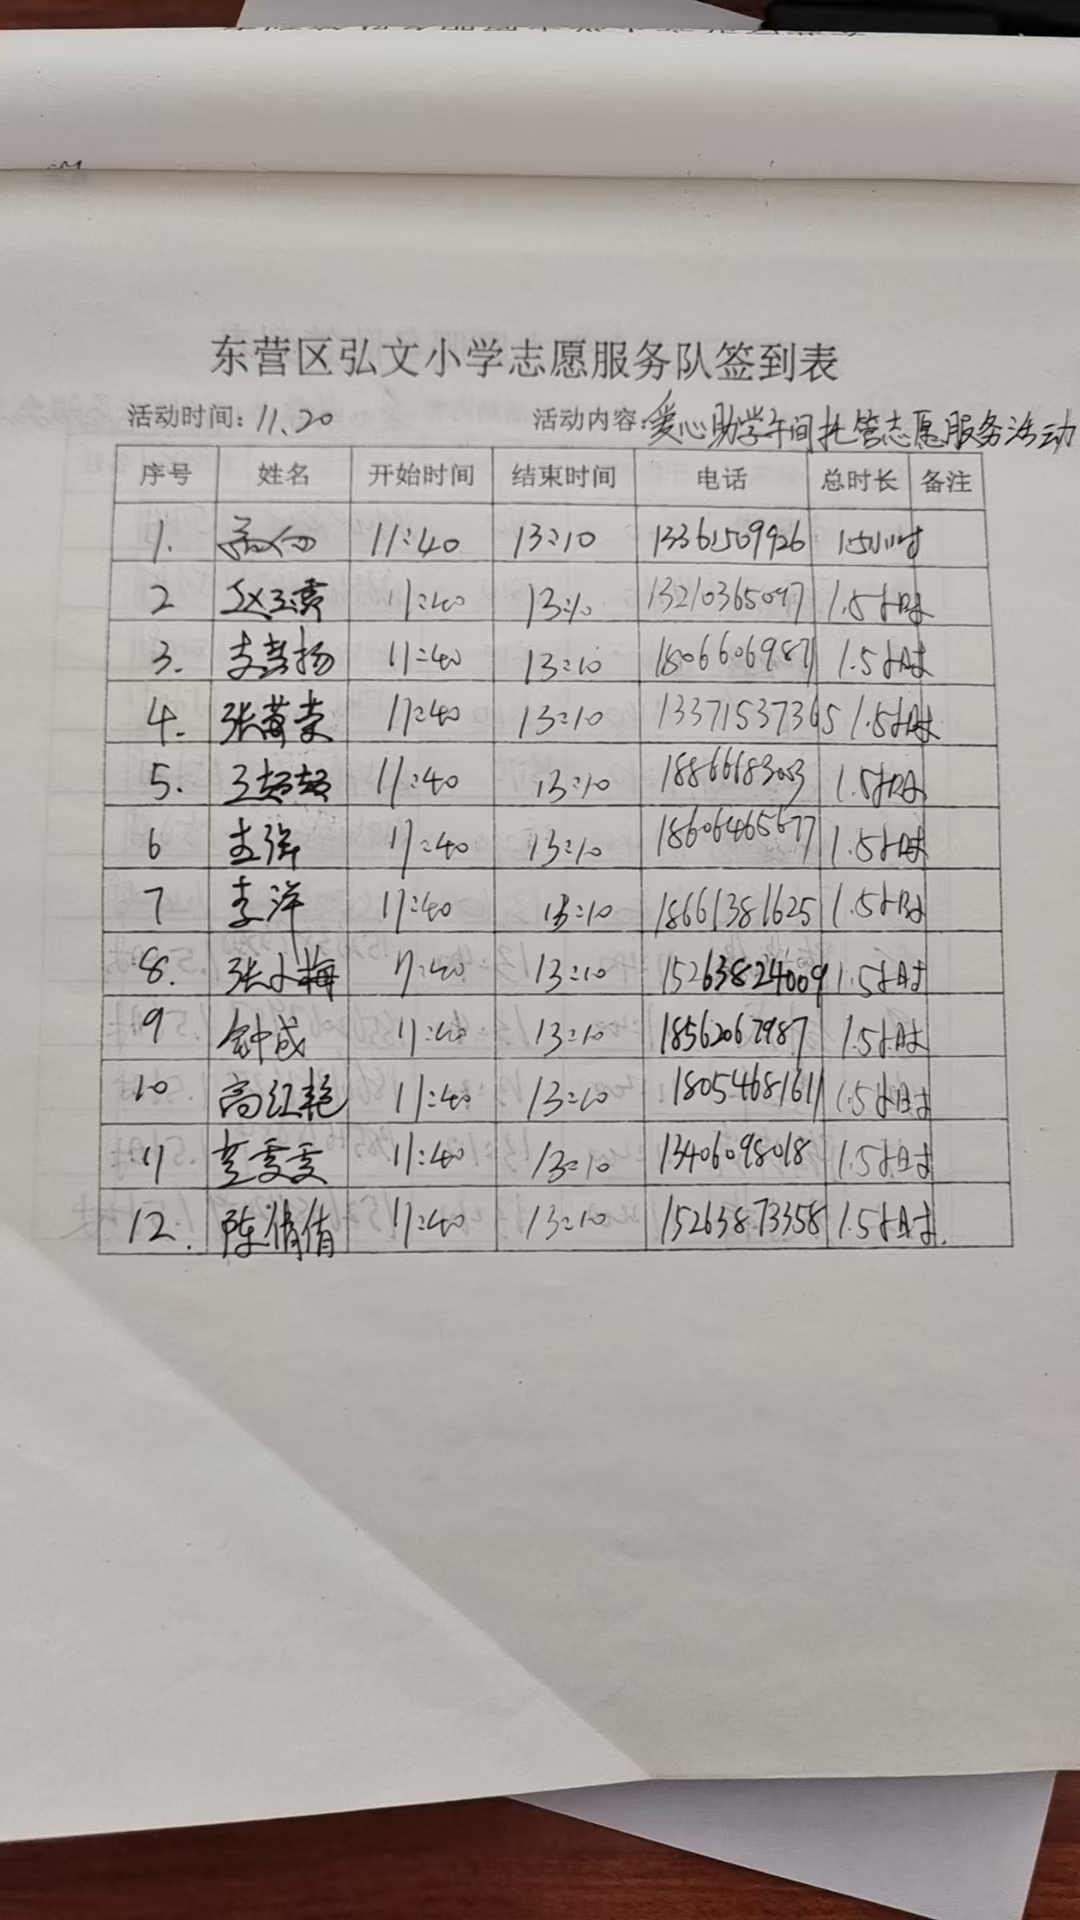 东营区弘文小学志愿服务队签到表
活动时间: 11.20 活动内容: 爱心助学午间托管志愿服务活动
序号 姓名 开始时间 结束时间 电话 总时长 备注
1. 11:40 13:10 13361509926 1.5小时
2 赵玉霞 11:40 13:10 13210365097 1.5小时
3. 11:40 13:10 18066069871 1.5小时
4. 张黄荣 11:40 13:10 13371537365 1.5小时
5. 王超超 11:40 13:10 18866683003 1.5小时
6 11:40 13:10 18606465677 1.5小时
7 李洋 11:40 13:10 18661381625 1.5小时
8. 张小梅 11:40 13:10 15263824009 1.5小时
9 钟成 11:40 13:10 18562067987 1.5小时
10 高红艳 11:40 13:10 18054681611 1.5小时
11 雯雯 11:40 13:10 13406098018 1.5小时
12. 陈倩倩 11:40 13:10 15263873358 1.5小时.